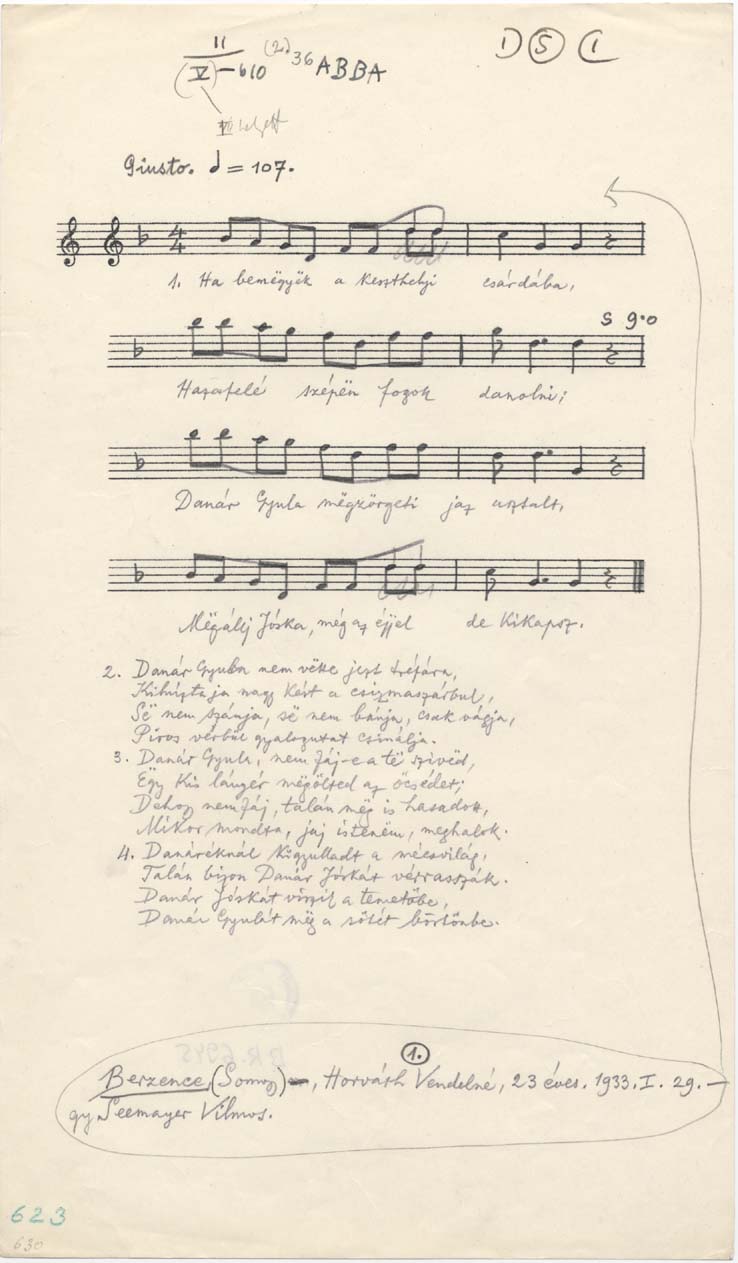 II
(V)-610 (2.) 36 ABBA
D 5 C
VII helyett
Giusto. = 107.
4
4
1. Ha bemëgyëk a keszthelyi csárdába,
S 9.o
Hazafelé szépën fogok danolni;
Danár Gyula mëgzörgeti jaz asztalt,
Mëgállj Jóska, még az éjjel de kikapsz.
2. Danár Gyula nem vëtte jezt tréfára,
Kihúzta ja nagy kést a csizmaszárbul,
Së nem szánja, së nem bánja, csak vágja,
Piros vérbül gyalogutat csinálja.
3. Danár Gyula, nem fáj-e a të szivëd,
Ëgy kis lányér mëgölted az öcsédet;
Dehogy nem fáj, talán még is hasadott,
Mikor mondta, jaj istenëm, meghalok.
4. Danáréknál kigyulladt a mécsvilág,
Talán bizon Danár Jóskát vérrasszák.
Danár Jóskát viszik a temetőbe,
Danár Gyulát mëg a sötét börtönbe.
B.R. 6945
1.
Berzence, (Somogy) –, Horváth Vendelné, 23 éves. 1933. I. 29. –
gy. Seemayer Vilmos.
623
630